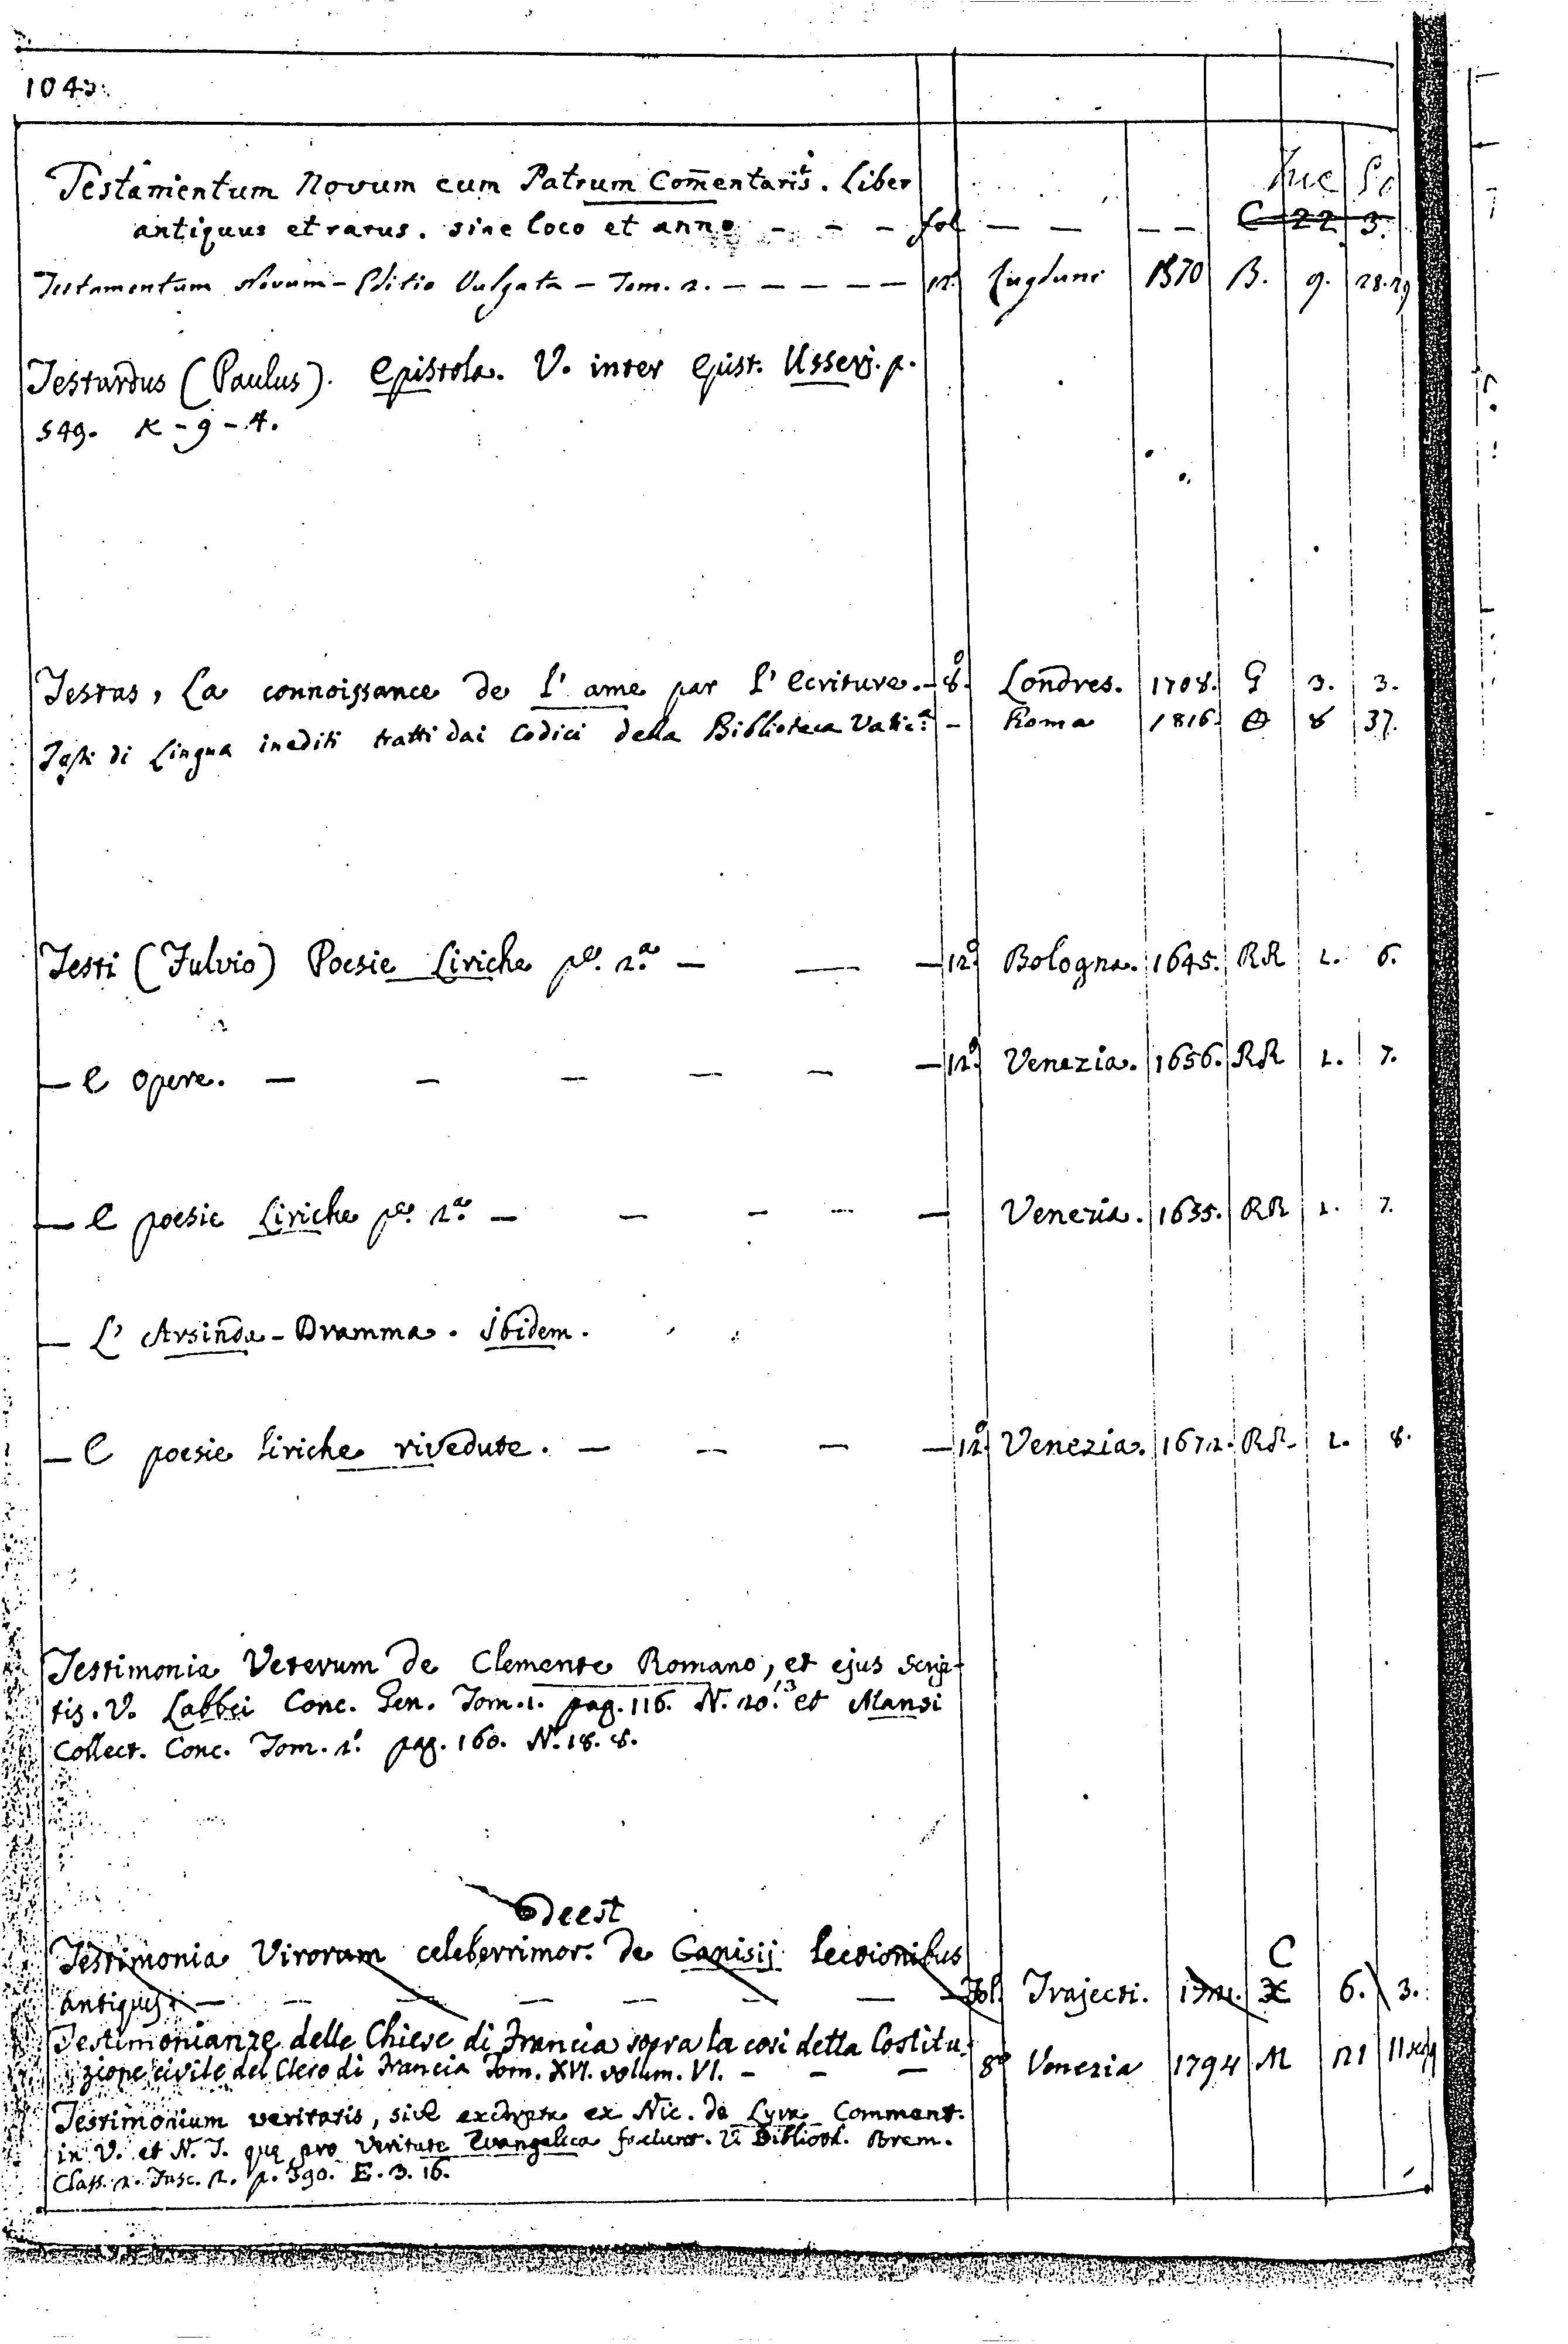 Testamentum Novum cum Patrum Com̄entariis. Liber Inc
antiquus et rarus. sine loco et anno - - - fol - - - - C 22. 3.
Testamentum Novum - Editio Vulgata - Tom. 2. - - - - - 12. Lugduni 1570 B. 9. 28.29
Testardus (Paulus). Epistola. V. inter Epist. Usserj. p.
549. K - 9 - 4.
Testas, La connoissance de l' ame par l' Ecriture. - 8.° Londres. 1708. G 3. 3.
Testi di Lingua inediti tratti dai Codici della Biblioteca Vatic.a - Roma 1816. 8 37.
Testi (Fulvio) Poesie Liriche p.e 2.a - - - 12.° Bologna. 1645. RR 2. 6.
- E opere. - - - - - - 12.° Venezia. 1656. RR 2. 7.
- E poesie Liriche p.e 2.a - - - - - Venezia. 1635. RR 2. 7.
- L' Arsinda - Dramma. Ibidem.
- E poesie liriche rivedute. - - - - 12.° Venezia. 1672. RR. 2. 8.
Testimonia Veterum de Clemente Romano, et ejus Scrip-
tis. V. Labbei Conc. Gen. Tom. 1. pag. 116. N. 20. 13 et Mansi
Collect. Conc. Tom. 1.° pag. 160. N. 18. 8.
Deest
Testimonia Virorum celeberrimor. de Canisij lectionibus C
antiquis. - - - - - - - - Fol. Trajecti. X 6. 3.
Testimonianze delle Chiese di Francia sopra la così detta Costitu-
zione civile del Clero di Francia Tom. XVI. volum. VI. - - - 8° Venezia 1794 M 121 11 segg
Testimonium veritatis, sive excerpta ex Nic. de Lyra Comment.
in V. et N. T. quę pro Veritate Evangelica faciunt. V. Biblioth. Brem.
Class. 2. Fasc. 2. p. 390. E. 3. 16.